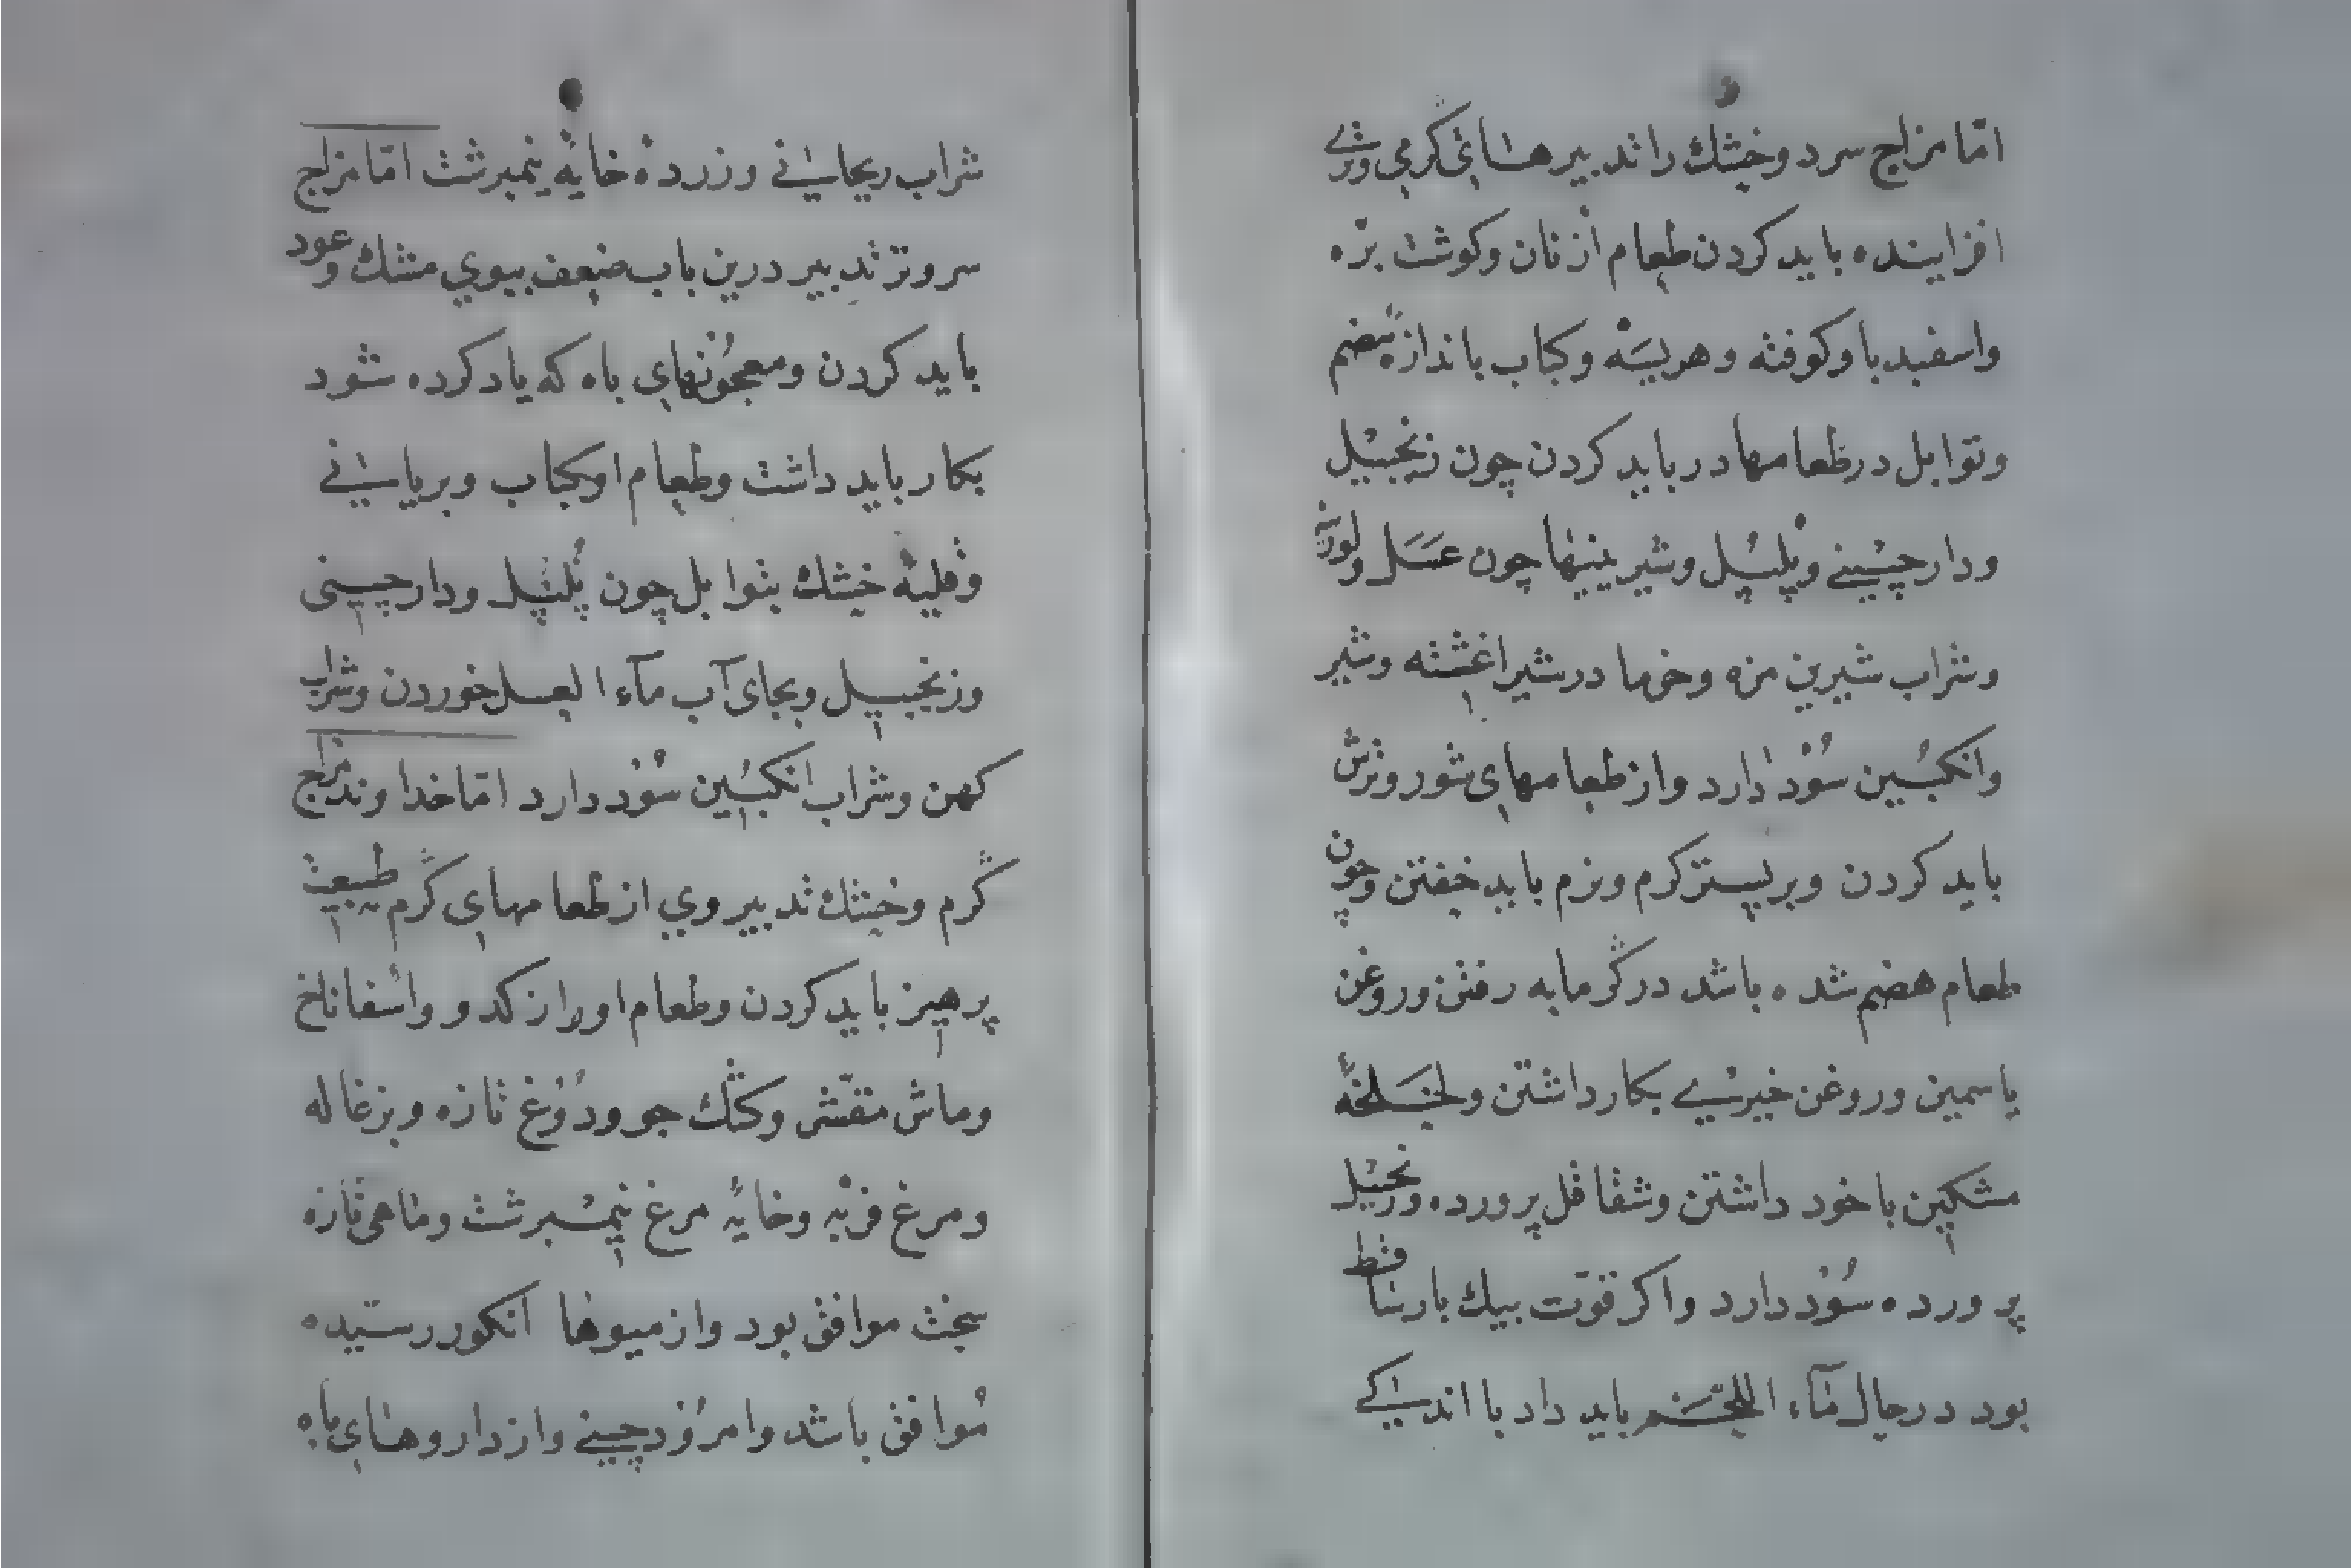 امّا مزاج سرد و خشك را تدبیرهائ گرمی و تری
افزاینده باید کردن طعام از نان و کوشت برّه
واسفیدبا وکوفته وهریسَه وکباب باندازه هضم
وتوابل درطعامها درباید کردن چون زنجبیل
ودارچینی وپلپل وشیرینیها چون عسَل ولوزینه
وشراب شیرین مزه وخرما درشیر اغشته وشیر
وانکبین سُوذ دارد واز طعامهای شور وترش
باید کردن وبربستر کرم ونرم باید خفتن وچون
طعام هضم شده باشد درگرمابه رفتن وروغن
یاسمین وروغن خیری بکار داشتن ولخلخهٔ
مشکین با خود داشتن وشقاقل پرورده وزنجبیل
پرورده سُوذ دارد واکر قوّت بیك بار ساقط
بود درحال مآء اللحم باید داد با اندکی
شراب ریحانی وزردهٔ خایهٔ نیمبرشت امّا مزاج
سرد وتر تدبیر درین باب ضعف ببوی مشك وعود
باید کردن ومعجونهای باه که یاد کرده شود
بکار باید داشت وطعام او کباب وبریانی
وقلیهٔ خشك بتوابل چون پلپل ودارچینی
وزنجبیل وبجای آب مآء العسل خوردن وشراب
کهن وشراب انکبین سُوذ دارد امّا خداوند مزاج
گرم وخشك تدبیر وی از طعامهای گرم طبیعت
پرهیز باید کردن وطعام اورا از کدو واسفاناخ
وماش مقشّر وکشك جو ودُوغ تازه وبزغاله
ومرغ فربه وخایهٔ مرغ نیمبرشت وماهی تازه
سخت موافق بود واز میوها انکور رسیده
مُوافق باشد وامرُوذ چینی واز داروهای باه